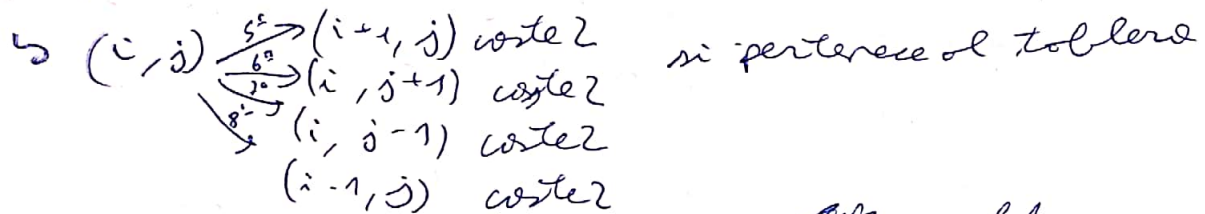 ↳ (i,j) 5º→ (i+1, j) coste 2 si pertenece al tablero
6º→ (i, j+1) coste 2
7º→ (i, j-1) coste 2
8º→ (i-1, j) coste 2